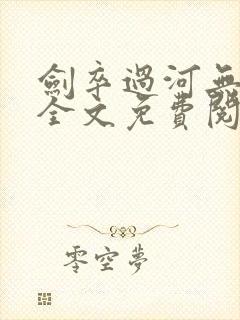 劍卒過河無
全文免費閱
零空夢